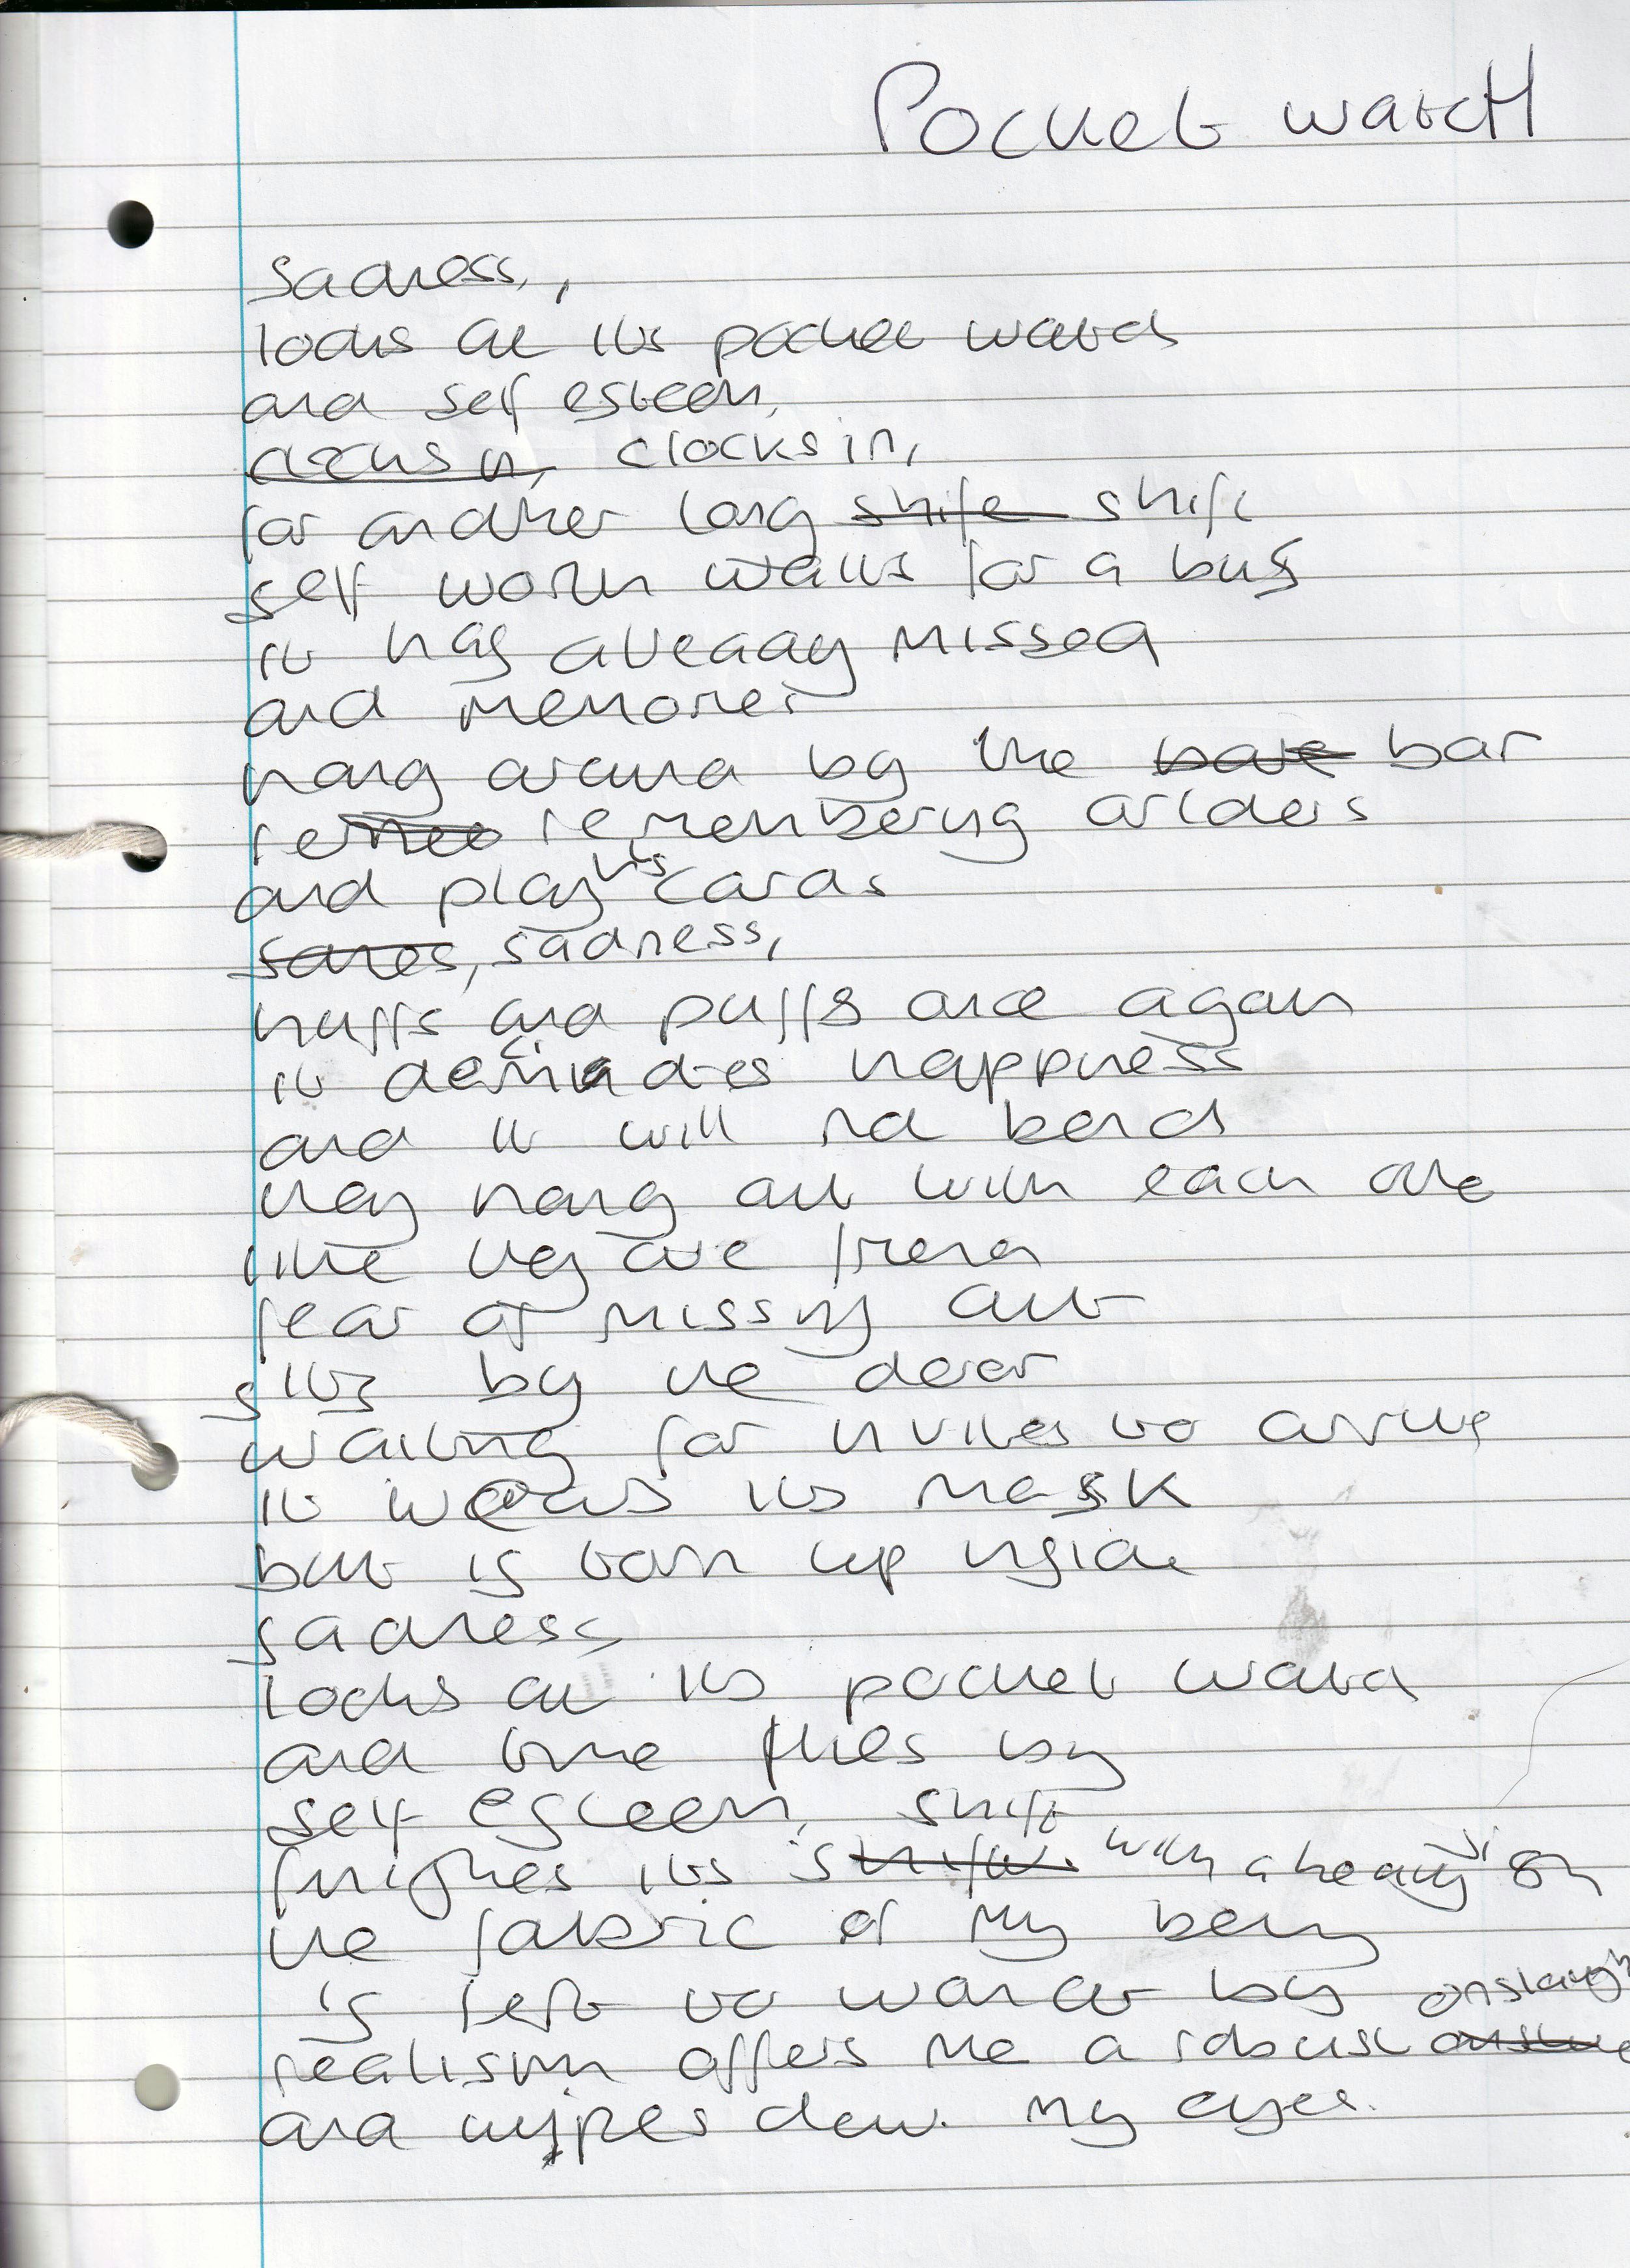 Pocket watcH
Sadness,,
looks at its pocket watch
and self esteem,
clocks in, clocks in,
for another long shift shift
self worth waits for a bus
it has already missed
and memories
hang around by the bar
remembering orders
and play his cards
sadness,
huffs and puffs once again
it des happiness
and it will not bend
they hang out with each one
like they are friend
fear of missing out
sits by the door
waiting for invites to arrive
it wears its mask
but is torn up inside
sadness
looks at its pocket watch
and time flies by
self esteem, shift
finishes its with a heavy sigh
the fabric of my being
is left to wander by
realism offers me a robust onslaugh
and wipes dew. my eyes.